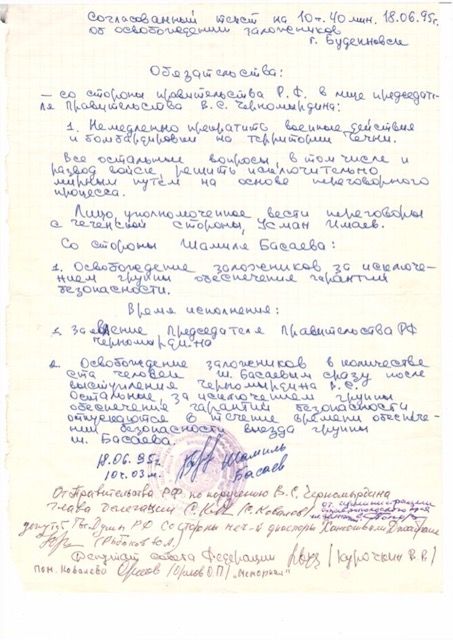 Согласованный текст на 10ч. 40 мин. 18.06.95г.
об освобождении заложников
г. Буденновск
Обязательства:
– со стороны правительства Р.Ф. в лице председате-
ля Правительства В.С. Черномырдина:
1. Немедленно прекратить военные действия
и бомбардировки на территории Чечни.
Все остальные вопросы, в том числе и
развод войск, решить исключительно
мирным путем на основе переговорного
процесса.
Лицо, уполномоченное вести переговоры
с чеченской стороны, Усман Имаев.
Со стороны Шамиля Басаева:
1. Освобождение заложников за исключе-
нием группы обеспечения гарантий
безопасности.
Время исполнения:
1. Заявление Председателя Правительства РФ
Черномырдина
2. Освобождение заложников в количестве
ста человек Ш. Басаевым сразу после
выступления Черномырдина В.С.
Остальные, за исключением группы
обеспечения гарантий безопасности
отпускаются в течение времени обеспече-
ния безопасности выезда группы
Ш. Басаева.
18.06.95г. Шамиль
10ч. 03м. Басаев
От Правительства РФ по поручению В.С. Черномырдина
глава делегации (С. Ковалев) от администрации
депутат Гос. Думы РФ со стороны
(Рыбаков Ю.А.)
Депутат Совета Федерации (Курочкин В.В.)
пом. Ковалева Орлов (Орлов О.П.) „Мемориал"